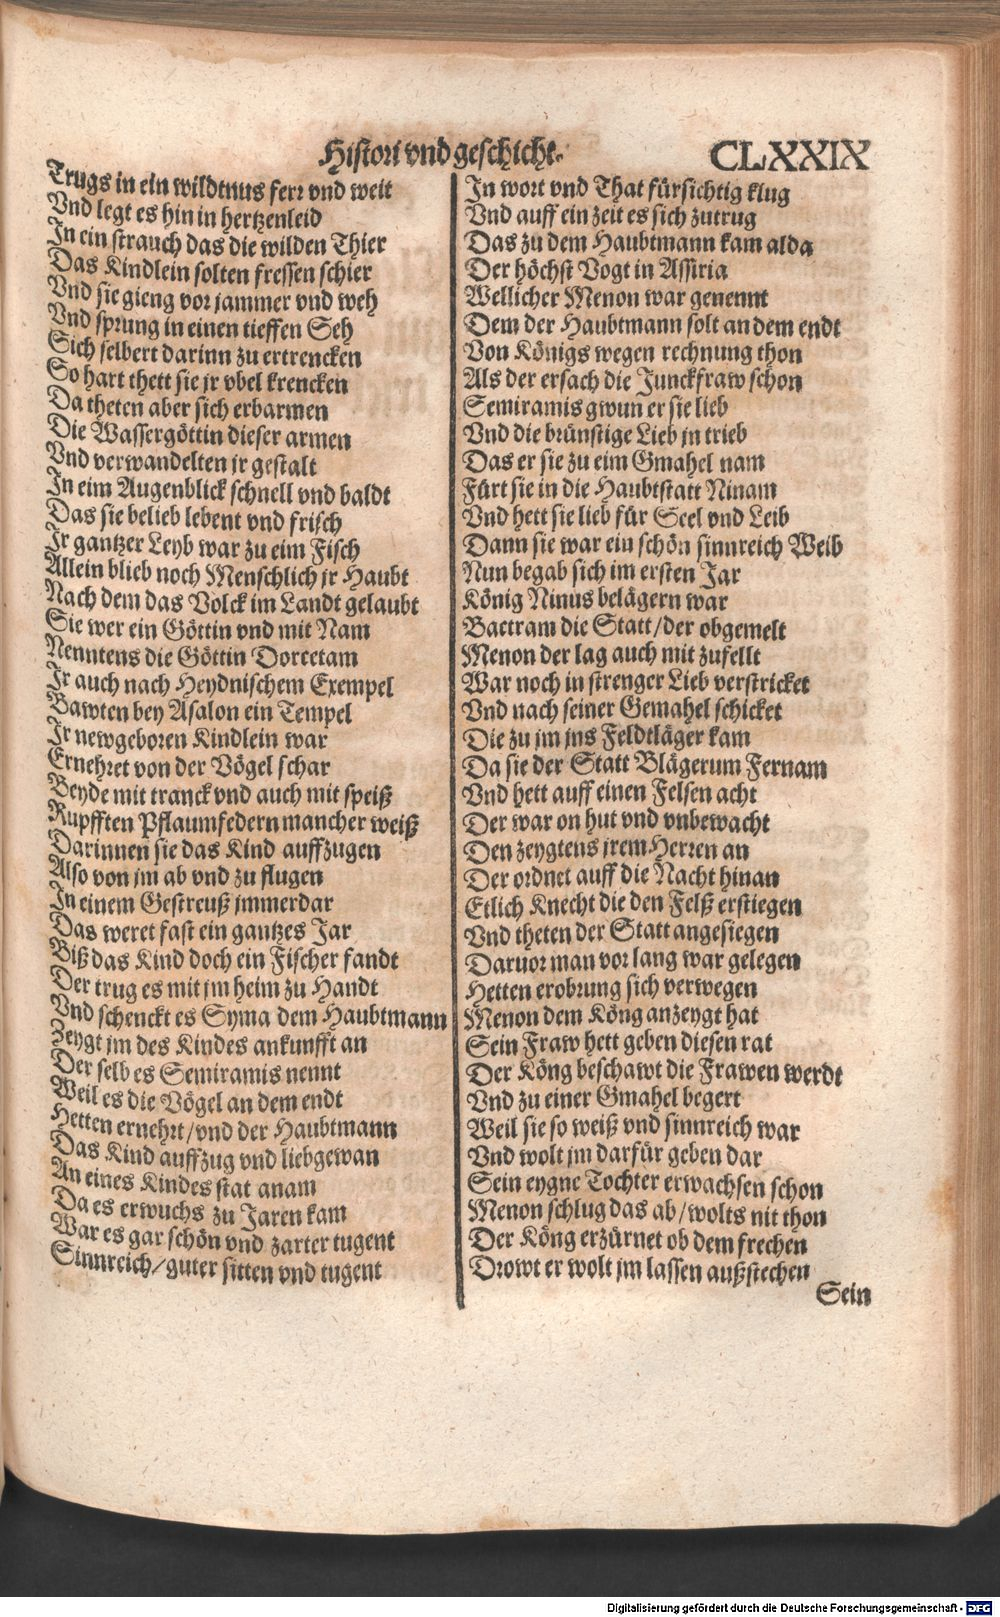 Histori vnd geschicht.
CLXXIX
Trugs in ein wildtnus ferr vnd weit
Vnd legt es hin in hertzenleid
In ein strauch das die wilden Thier
Das Kindlein solten fressen schier
Vnd sie gieng vor jammer vnd weh
Vnd sprung in einen tieffen Seh
Sich selbert darinn zu ertrencken
So hart thett sie jr vbel krencken
Da theten aber sich erbarmen
Die Wassergöttin dieser armen
Vnd verwandelten jr gestalt
In eim Augenblick schnell vnd baldt
Das sie belieb lebent vnd frisch
Ir gantzer Leyb war zu eim Fisch
Allein blieb noch Menschlich jr Haubt
Nach dem das Volck im Landt gelaubt
Sie wer ein Göttin vnd mit Nam
Nenntens die Göttin Dorcetam
Ir auch nach Heydnischem Exempel
Bawten bey Asalon ein Tempel
Ir newgeboren Kindlein war
Ernehret von der Vögel schar
Beyde mit tranck vnd auch mit speiß
Rupfften Pflaumfedern mancher weiß
Darinnen sie das Kind auffzugen
Also von jm ab vnd zu flugen
In einem Gestreuß jmmerdar
Das weret fast ein gantzes Jar
Biß das Kind doch ein Fischer fandt
Der trug es mit jm heim zu Handt
Vnd schenckt es Syma dem Haubtmann
Zeygt jm des Kindes ankunfft an
Der selb es Semiramis nennt
Weil es die Vögel an dem endt
Hetten ernehrt/vnd der Haubtmann
Das Kind auffzug vnd liebgewan
An eines Kindes stat anam
Da es erwuchs zu Jaren kam
War es gar schön vnd zarter tugent
Sinnreich/guter sitten vnd tugent
In wort vnd That fürsichtig klug
Vnd auff ein zeit es sich zutrug
Das zu dem Haubtmann kam alda
Der höchst Vogt in Assiria
Wellicher Menon war genennt
Dem der Haubtmann solt an dem endt
Von Königs wegen rechnung thon
Als der ersach die Junckfraw schon
Semiramis gwun er sie lieb
Vnd die brünstige Lieb jn trieb
Das er sie zu eim Gmahel nam
Fürt sie in die Haubtstatt Ninam
Vnd hett sie lieb für Seel vnd Leib
Dann sie war ein schön sinnreich Weib
Nun begab sich im ersten Jar
König Ninus belägern war
Bactram die Statt/der obgemelt
Menon der lag auch mit zufellt
War noch in strenger Lieb verstricket
Vnd nach seiner Gemahel schicket
Die zu jm jns Feldtläger kam
Da sie der Statt Blägerum Fernam
Vnd hett auff einen Felsen acht
Der war on hut vnd vnbewacht
Den zeygtens jrem Herren an
Der ordnet auff die Nacht hinan
Etlich Knecht die den Felß erstiegen
Vnd theten der Statt angesiegen
Daruor man vor lang war gelegen
Hetten erobrung sich verwegen
Menon dem Köng anzeygt hat
Sein Fraw hett geben diesen rat
Der Köng beschawt die Frawen werdt
Vnd zu einer Gmahel begert
Weil sie so weiß vnd sinnreich war
Vnd wolt jm darfür geben dar
Sein eygne Tochter erwachsen schon
Menon schlug das ab/wolts nit thon
Der Köng erzürnet ob dem frechen
Drowt er wolt jm lassen außstechen
Sein
Digitalisierung gefördert durch die Deutsche Forschungsgemeinschaft - DFG